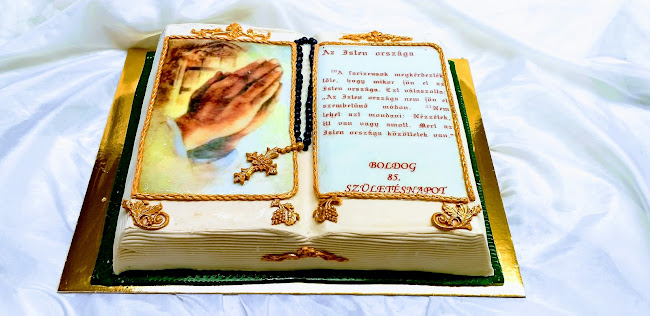 Az Isten országa
²⁰A farizeusok megkérdezték
tőle, hogy mikor jön el az
Isten országa. Ezt válaszolta:
„Az Isten országa nem jön el
szembetűnő módon. ²¹Nem
lehet azt mondani: Nézzétek,
itt van vagy amott. Mert az
Isten országa közöttetek van."
BOLDOG
85.
SZÜLETÉSNAPOT